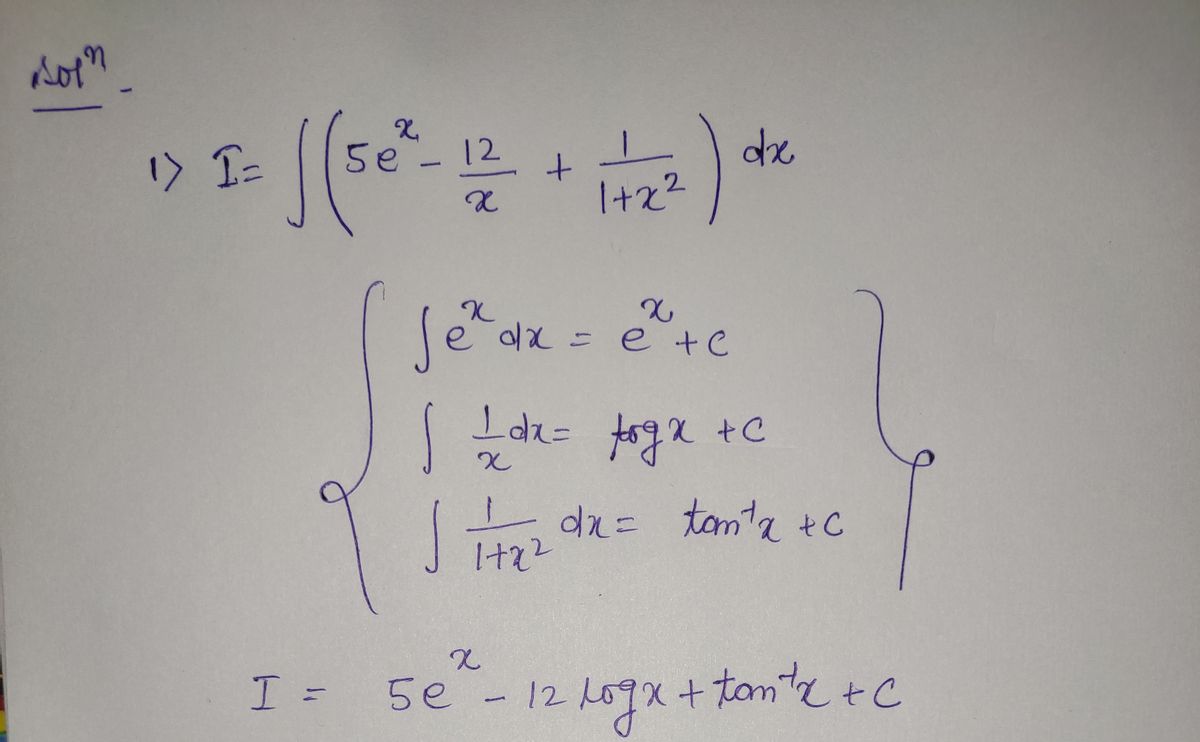 Solⁿ -
1) I = ∫(5eˣ - 12/x + 1/(1+x²)) dx
∫eˣ dx = eˣ + c
∫ 1/x dx = log x + c
∫ 1/(1+x²) dx = tan⁻¹x + c
I = 5eˣ - 12 log x + tan⁻¹x + c